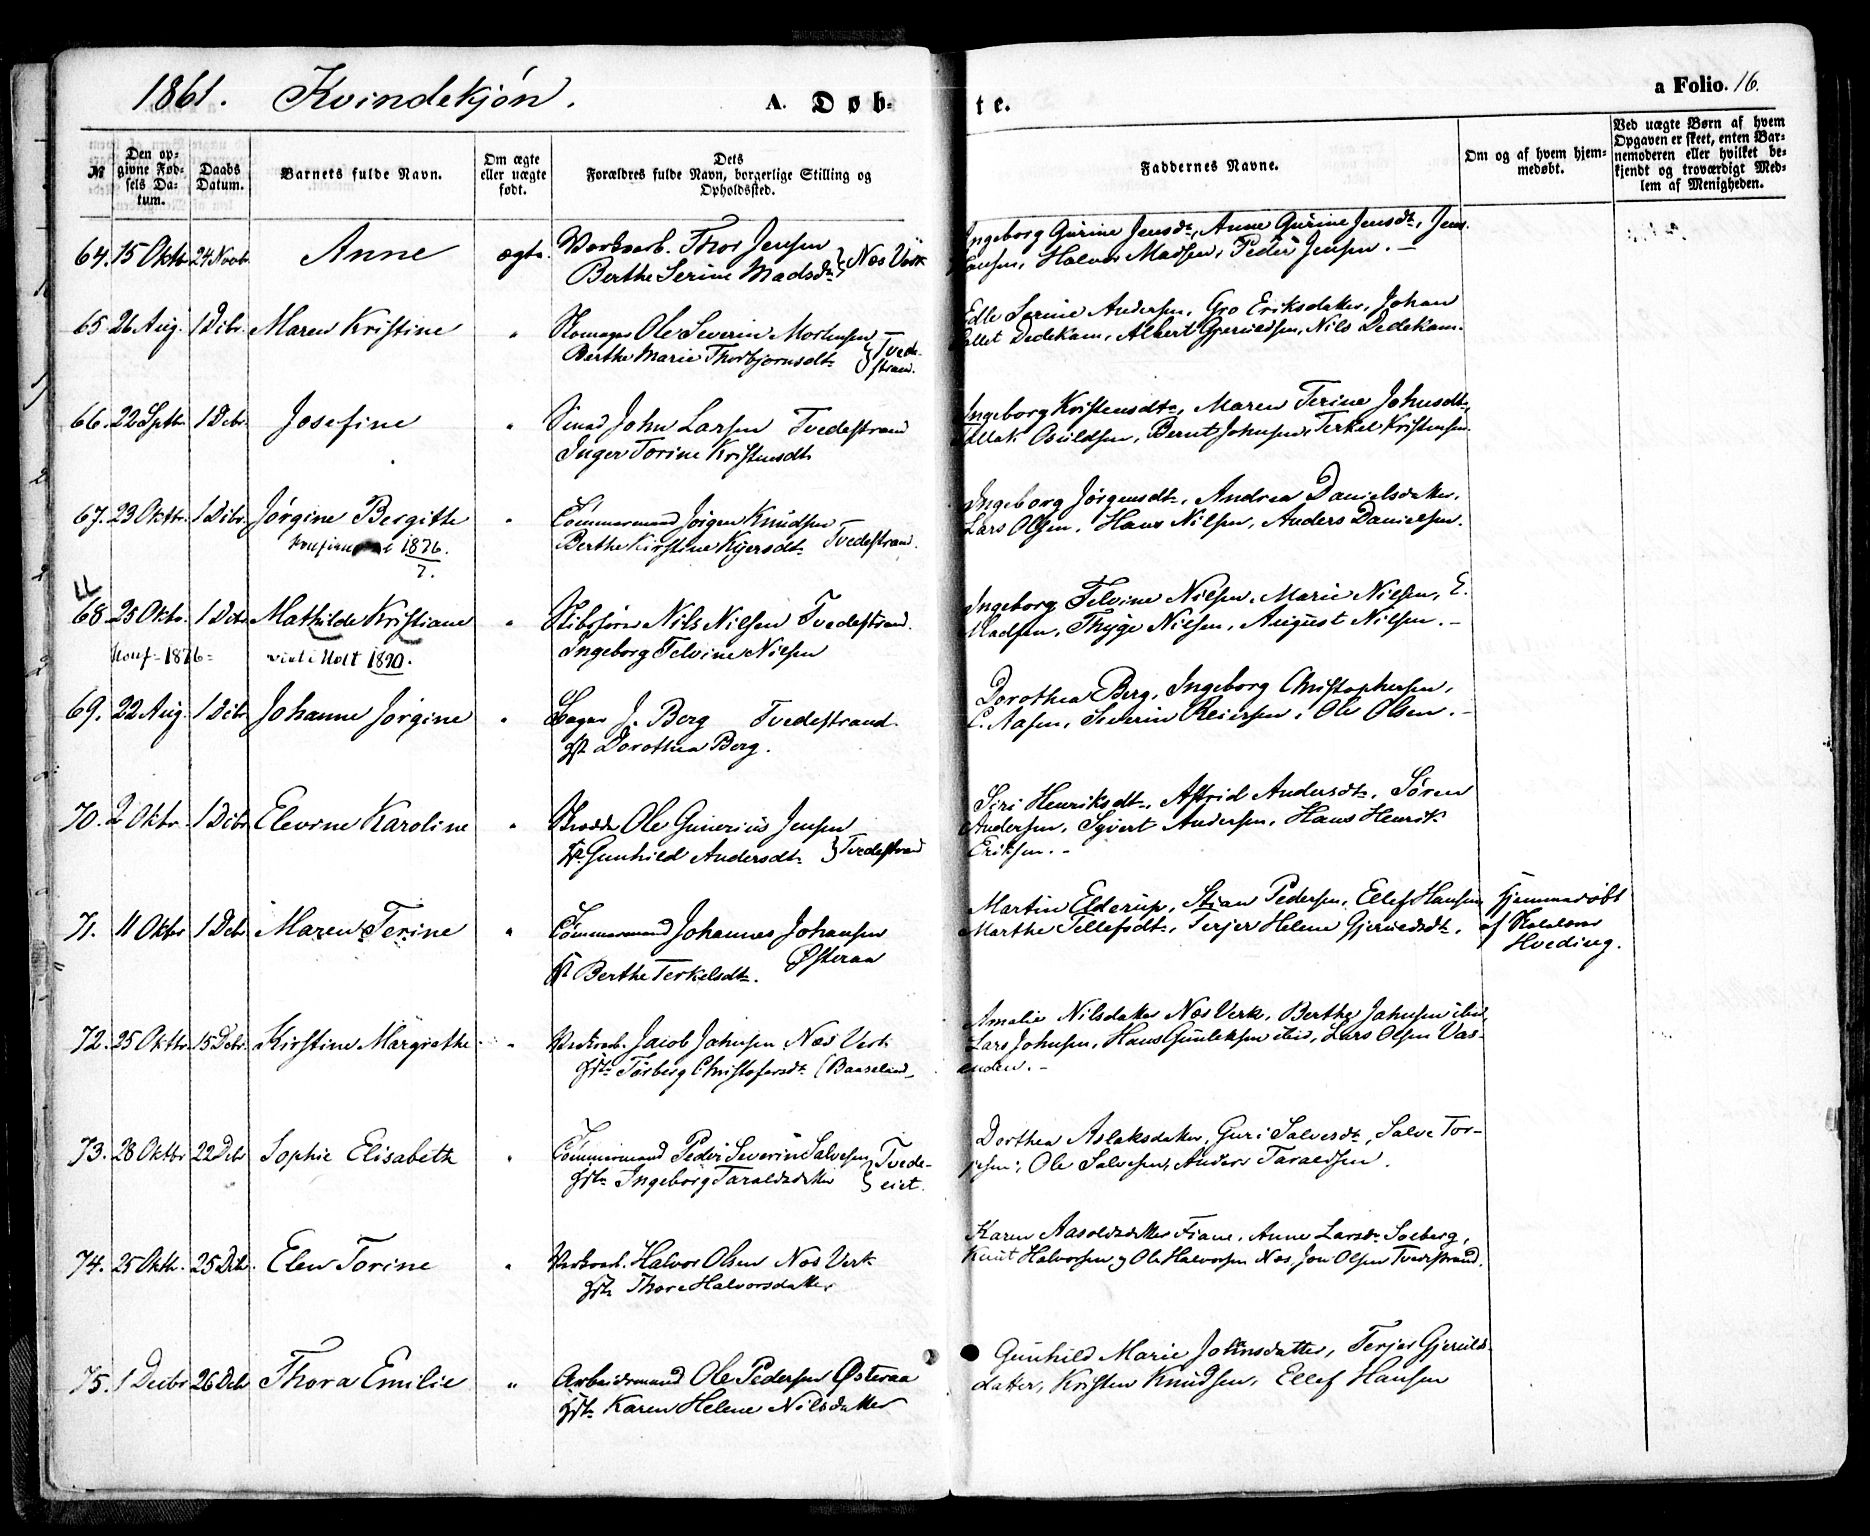 1861. Kvindekjön. A. Døb-
te. a Folio. 16.
№
Den op-
givne Fød-
sels Da-
tum.
Daabs
Datum.
Barnets fulde Navn.
Om ægte
eller uægte
født.
Dets
Forældres fulde Navn, borgerlige Stilling og
Opholdssted.
Faddernes Navne.
Om og af hvem hjem-
medøbt.
Ved uægte Børn af hvem
Opgaven er skeet, enten Bar-
nemoderen eller hvilket be-
kjendt og troværdigt Med-
lem af Menigheden.
64. 15 Oktbr 24 Novb. Anne ægte. Værksarb. Thor Jensen
Berthe Serine Madsdtr } Næs Værk
Ingeborg Gurine Jensdtr, Anne Gurine Jensdtr, Jens
Hansen, Halvor Madsen, Peder Jensen. —
65. 26 Aug. 1 Debr. Maren Kristine " Skomager Ole Severin Mortensen
Berthe Marie Thorbjørnsdtr } Tvede-
strand.
Edle Serine Andersen, Gro Eriksdatter, Johan
Dedekam, Albert Gjeruldsen, Nils Dedekam.
66. 22 Septbr 1 Debr. Josefine " Smed John Larsen Tvedestrand
Inger Torine Kristensdtr
Ingeborg Kristensdtr, Maren Terine Johnsdtr,
Tellak Osuldsen, Bernt Johnsen, Terkel Kristensen.
67. 23 Oktbr. 1 Debr. Jørgine Bergithe " Tømmermand Jørgen Knudsen
i 1876.
7.
Berthe Kirstine Kjersdtr Tvedestrand.
Ingeborg Jørgensdtr, Andrea Danielsdatter,
Lars Olsen, Hans Nilsen, Anders Danielsen.
68 25 Oktbr. 1 Debr Mathilde Kristiane " Skibsfører Nils Nielsen Tvedestrand.
Konf- 1876- viet i Holt 1890. Ingeborg Telvine Nilsen
Ingeborg Telvine Nilsen, Marie Nilsen, E.
Madsen, Thyge Nielsen, August Nilsen. —
69. 22 Aug. 1 Debr Johanne Jørgine " J. Berg Tvedestrand.
Dorothea Berg.
Dorothea Berg, Ingeborg Christophersen,
C. Aasen, Severin Reiersen, Ole Olsen. —
70. 2 Oktbr. 1 Debr Elevine Karoline " Skrædder Ole Gunerius Jensen
Gunhild Andersdtr } Tvedestrand
Siri Henriksdtr, Astrid Andersdtr, Søren
Andersen, Syvert Andersen, Hans Henrik
Eriksen. -
71. 11 Oktbr 1 Debr Maren Terine " Tømmermand Johannes Johansen
Berthe Terkelsdtr. Østeraa
Martin Elderup, Stian Pedersen, Ellef Hansen
Marthe Tellefsdtr, Terjer Helene Gjeruldsdtr.
Hjemmedøbt
af
Hveding.
72. 25 Oktbr 15 Debr. Kirstine Margrethe " Værksarb. Jacob Jahnsen Næs Verk
Torberg Christofersdtr (Baaseland
Amalie Nilsdatter Næs Verk, Berthe Jahnsen ibid
Lars Johnsen, Hans Gunleksen ibid, Lars Olsen Vas-
enden. -
73. 28 Oktbr 22 Debr Sophie Elisabeth " Tømmermand Peder Severin Salvesen
Ingeborg Taraldsdatter } Tvede-
eiet.
Dorthea Aslaksdatter, Guri Salvesdtr, Salve Tor-
jesen, Ole Salvesen, Anders Taraldsen.
74. 25 Oktbr. 25 Debr. Elen Torine " Værksarb. Halvor Olsen Næs Verk
Thore Halvorsdatter
Karen Aasoldsdatter Fiane, Anne Larsdtr Soeberg,
Knut Halvorsen, Ole Halvorsen Næs, Jon Olsen Tvedestrand.
75. 1 Decbr 26 Debr Thora Emilie " Arbeidsmand Ole Pedersen Østeraa
Karen Helene Nilsdatter
Gunhild Marie Johnsdatter, Terjer Gjerulds-
datter, Kristen Knudsen, Ellef Hansen